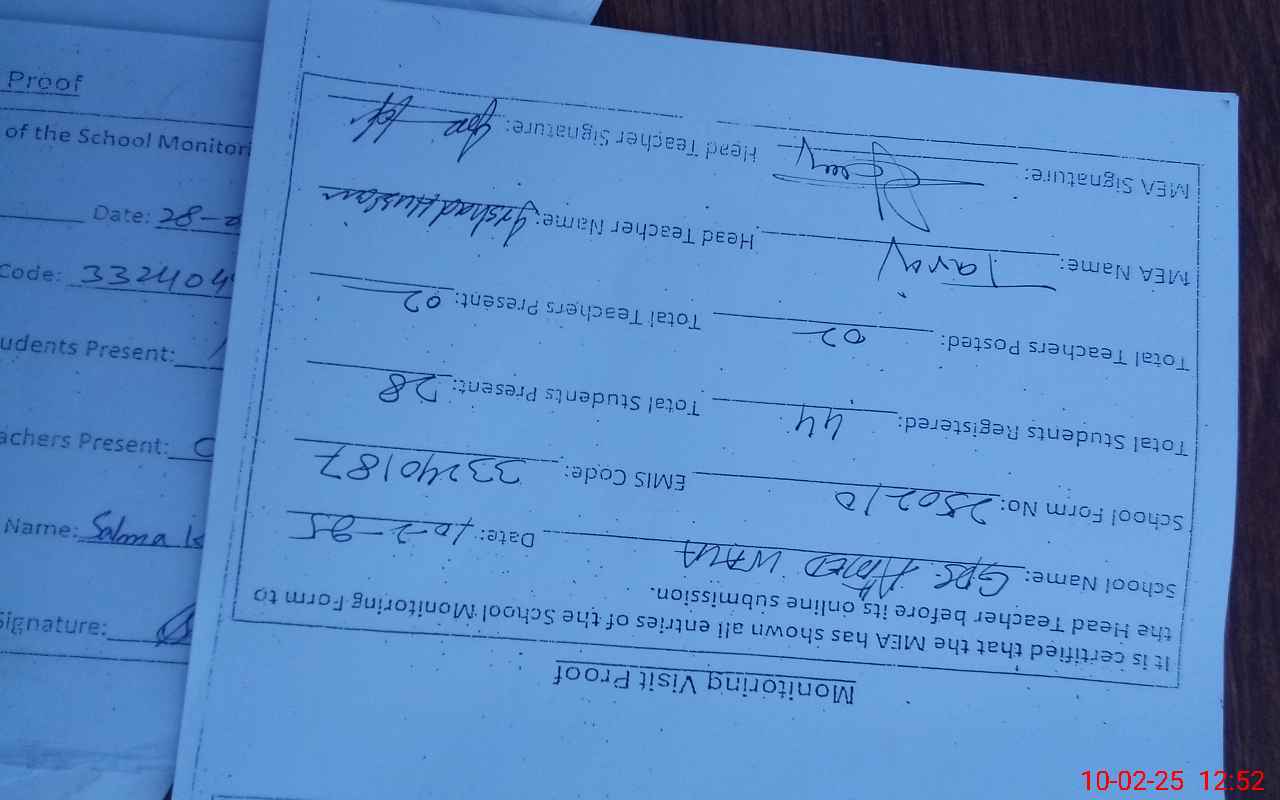 Monitoring Visit Proof
It is certified that the MEA has shown all entries of the School Monitoring Form to
the Head Teacher before its online submission.
School Name: GPS AHMED WALA Date: 10-2-25
School Form No: 250210 EMIS Code: 33240187
Total Students Registered: 44 Total Students Present: 28
Total Teachers Posted: 02 Total Teachers Present: 02
MEA Name: Tariq Head Teacher Name: Irshad Hussain
MEA Signature: Head Teacher Signature:
Proof
of the School Monitori
Date: 28-
Code: 332404
udents Present:
achers Present:
Name: Salma Is
Signature:
10-02-25 12:52